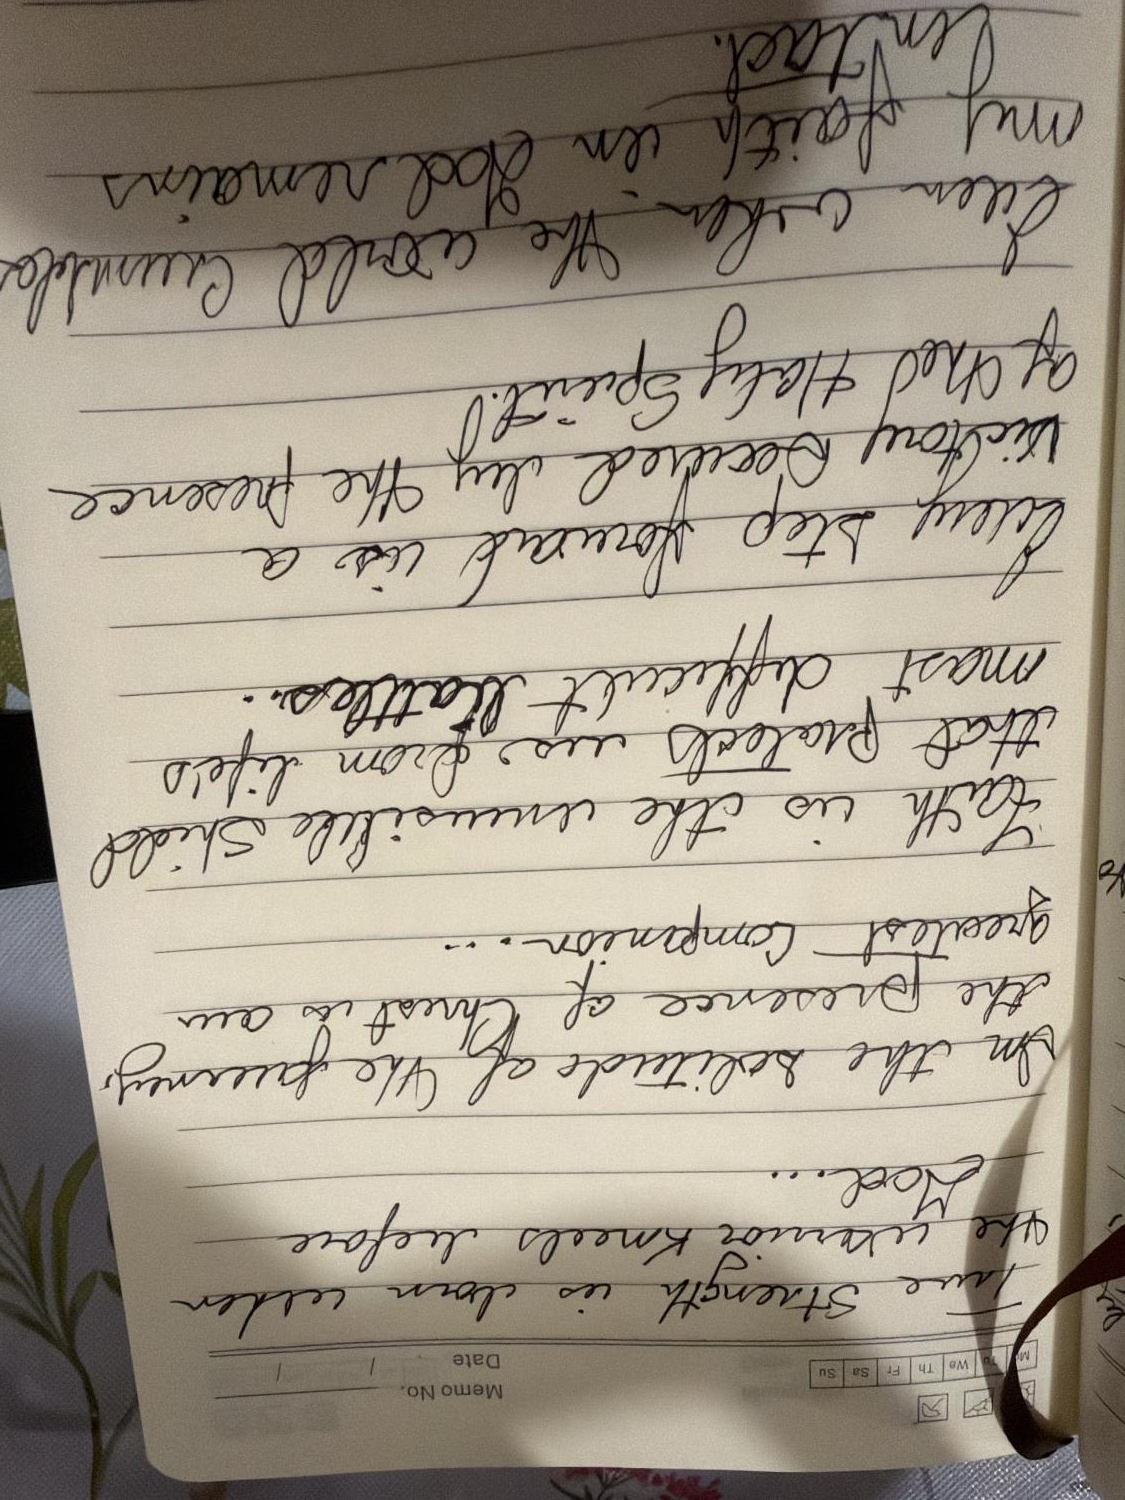 Memo No.
Mo Tu We Th Fr Sa Su
Date / /
True strength is born when
the warrior kneels before
God...
In the solitude of the journey,
the presence of Christ is our
greatest companion...
Faith is the invisible shield
that protects us from life's
most difficult battles...
Every step forward is a
victory secured by the presence
of the Holy Spirit!
Even when the world crumbles
my faith in God remains
intact.